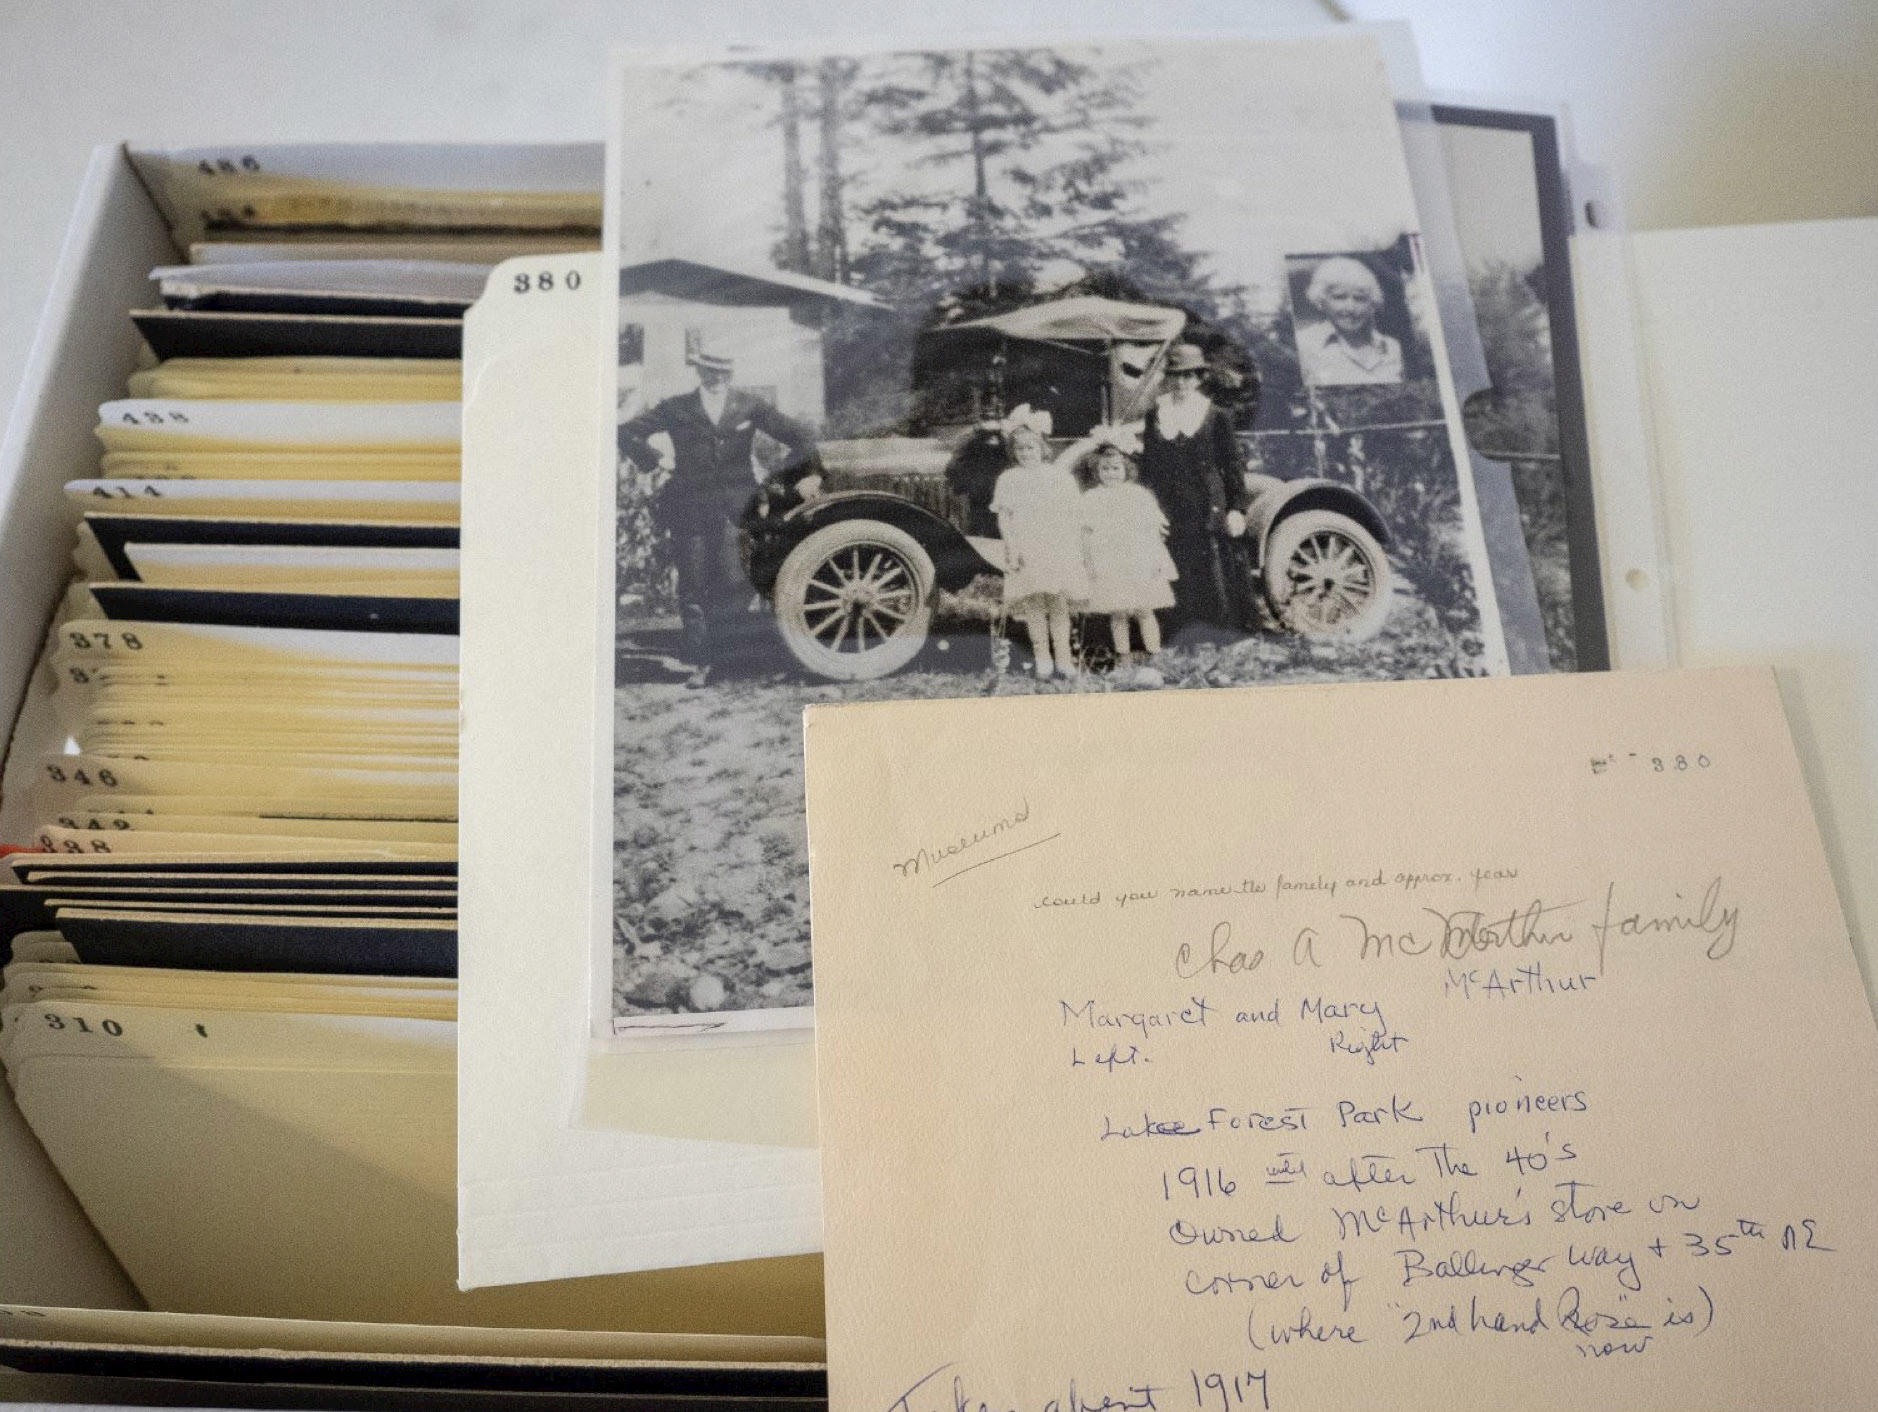 486
380
438
414
378
346
342
338
310
380
Museums
could you name the family and approx. year
Chas A Mc family
McArthur
Margaret and Mary
Left. Right
Lake Forest Park pioneers
1916 until after The 40's
Owned McArthur's store on
corner of Ballinger Way + 35th NE
(where "2nd hand Rose" is)
now
Taken about 1917